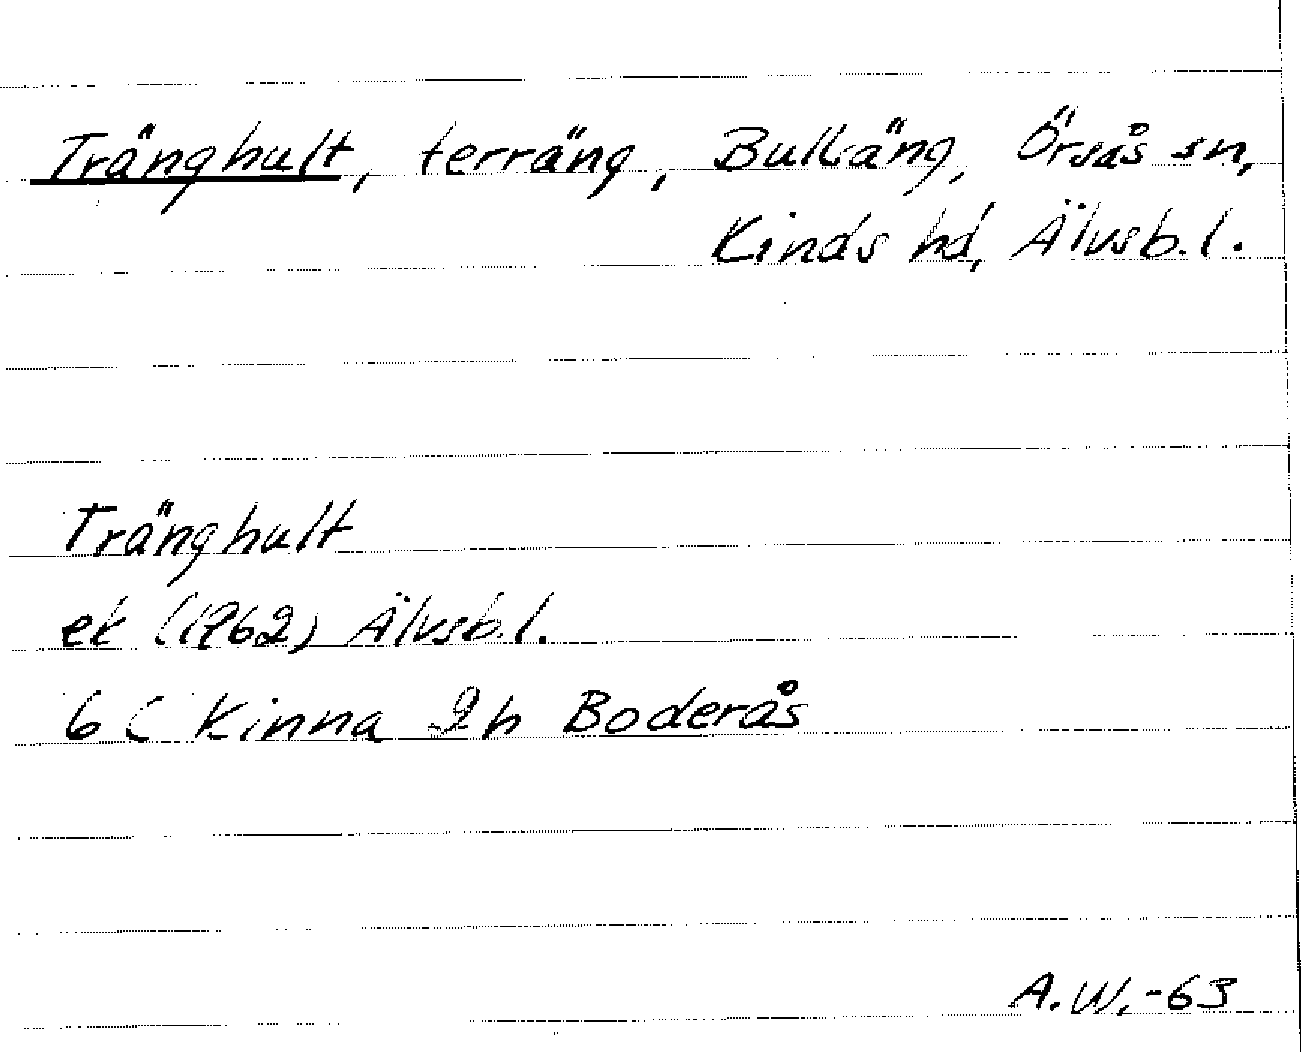 Tränghult, terräng, Bulläng, Örsås sn,
Kinds hd, Älvsb.l.
Tränghult
ek (1962) Älvsb.l.
6 C Kinna 2h Boderås
A.W.-63